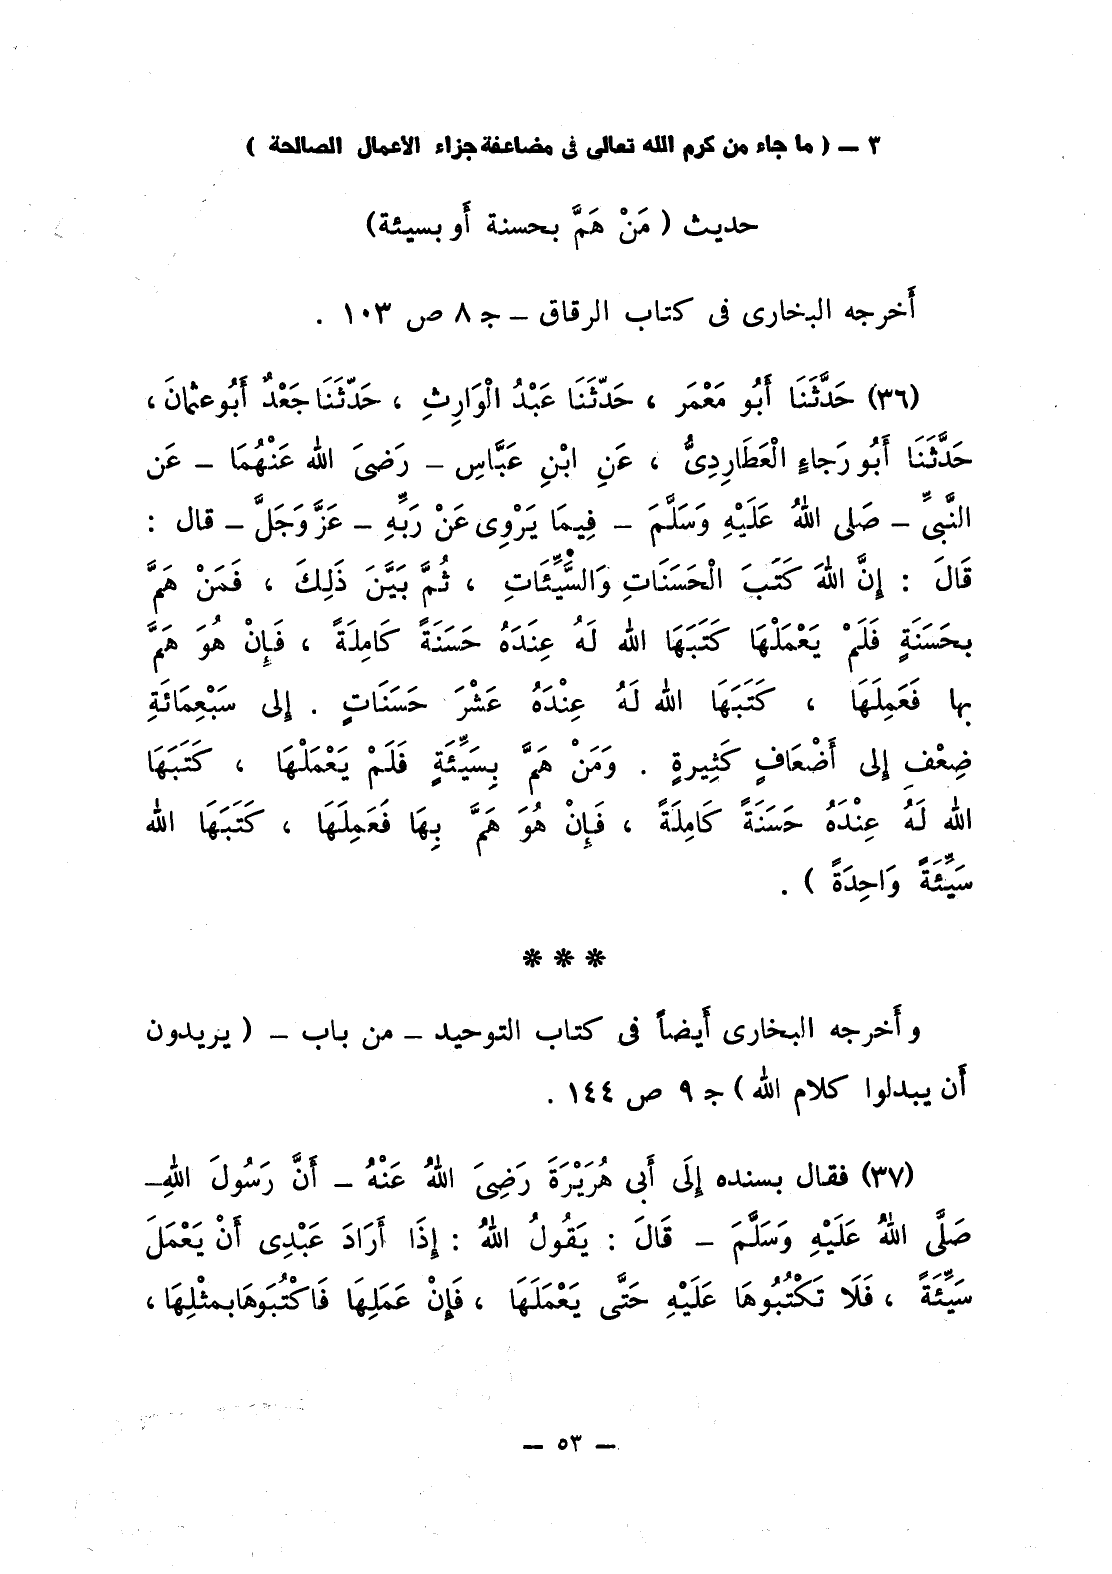 ٣ ــ ( ما جاء من كرم الله تعالى فى مضاعفة جزاء الأعمال الصالحة )
حديث ( مَنْ هَمَّ بحسنة أَو بسيئة)
أَخرجه البخارى فى كتاب الرقاق ــ جـ ٨ ص ١٠٣ .
(٣٦) حَدَّثَنَا أَبُو مَعْمَر ، حَدّثَنَا عَبْدُ الْوَارِثِ ، حَدّثَنَا جَعْدٌ أَبُو عثمانَ ،
حَدَّثَنَا أَبُو رَجاءٍ الْعَطَارِدِىُّ ، عَنِ ابْنِ عَبَّاسٍ ــ رَضىَ الله عَنْهُمَا ــ عَن
النَّبىِّ ــ صَلى اللهُ عَلَيْهِ وَسَلَّمَ ــ فِيمَا يَرْوِى عَنْ رَبِّهِ ــ عَزَّ وَجَلَّ ــ قال :
قَالَ : إِنَّ اللهَ كَتَبَ الْحَسَنَاتِ وَالسَّيِّئَاتِ ، ثُمَّ بَيَّنَ ذَلِكَ ، فَمَنْ هَمَّ
بحَسَنَةٍ فَلَمْ يَعْمَلْهَا كَتَبَهَا الله لَهُ عِندَهُ حَسَنَةً كَامِلَةً ، فَإِنْ هُوَ هَمَّ
بها فَعَمِلَهَا ، كَتَبَهَا الله لَهُ عِنْدَهُ عَشْرَ حَسَنَاتٍ . إِلى سَبْعِمَائَةِ
ضِعْفٍ إِلى أَضْعَافٍ كَثِيرةٍ . وَمَنْ هَمَّ بِسَيِّئَةٍ فَلَمْ يَعْمَلْهَا ، كَتَبَهَا
الله لَهُ عِنْدَهُ حَسَنَةً كَامِلَةً ، فَإِنْ هُوَ هَمَّ بِهَا فَعَمِلَهَا ، كَتَبَهَا الله
سَيِّئَةً وَاحِدَةً ) .
* * *
و أَخرجه البخارى أَيضاً فى كتاب التوحيد ــ من باب ــ ( يريدون
أَن يبدلوا كلام الله) جـ ٩ ص ١٤٤ .
(٣٧) فقال بسنده إِلَى أَبى هُرَيْرَةَ رَضِىَ اللهُ عَنْهُ ــ أَنَّ رَسُولَ اللهِ ــ
صَلَّى اللهُ عَلَيْهِ وَسَلَّمَ ــ قَالَ : يَقُولُ اللهُ : إِذَا أَرَادَ عَبْدِى أَنْ يَعْمَلَ
سَيِّئَةً ، فَلَا تَكْتُبُوهَا عَلَيْهِ حَتَّى يَعْمَلَهَا ، فَإِنْ عَمَلِهَا فَاكْتُبَوهَا بمثْلِهَا ،
ــ ٥٣ ــ